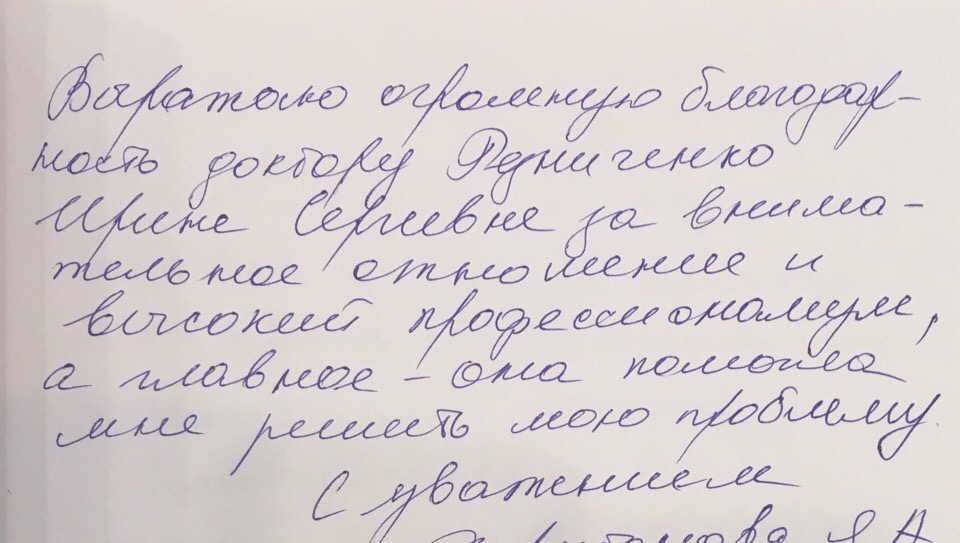 Выражаю огромную благодар-
ность доктору Редниченко
Ирине Сергиевне за внима-
тельное отношение и
высокий профессионализм,
а главное - она помогла
мне решить мою проблему.
С уважением